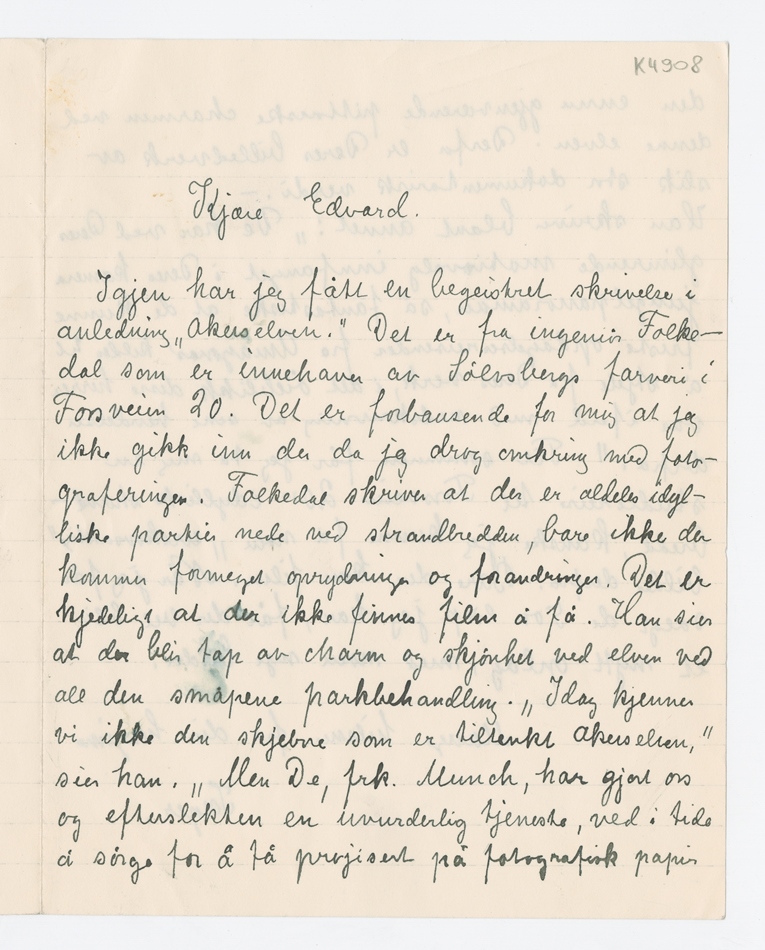 K4908
Kjære Edvard.
Igjen har jeg fått en begeistret skrivelse i
anledning „Akerselven." Det er fra ingeniør Folke-
dal som er innehaver av Sølvsbergs farveri i
Forsveien 20. Det er forbausende for mig at jeg
ikke gikk inn der da jeg drog omkring med foto-
graferingen. Folkedal skriver at der er aldeles idyl-
liske partier nede ved strandbredden, bare ikke der
kommer formeget oprydninger og forandringer. Det er
kjedeligt at der ikke finnes film å få. Han sier
at der blir tap av charm og skjønhet ved elven ved
all den småpene parkbehandling. „Idag kjenner
vi ikke den skjebne som er tiltenkt Akerselven,"
sier han. „Men De, frk. Munch, har gjort oss
og efterslekten en uvurderlig tjeneste, ved i tide
å sørge for å få projisert på fotografisk papir